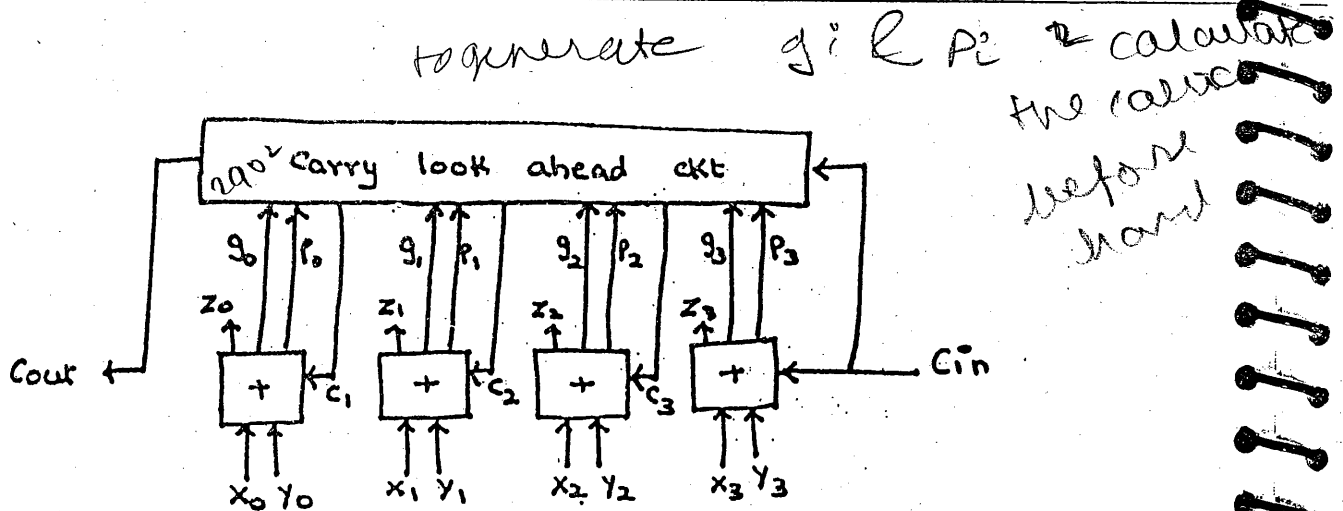 to generate gi & Pi calculate
the
before
hand
Carry look ahead ckt
g0 P0 g1 P1 g2 P2 g3 P3
Z0 Z1 Z2 Z3
Cout + C1 + C2 + C3 + Cin
X0 Y0 X1 Y1 X2 Y2 X3 Y3